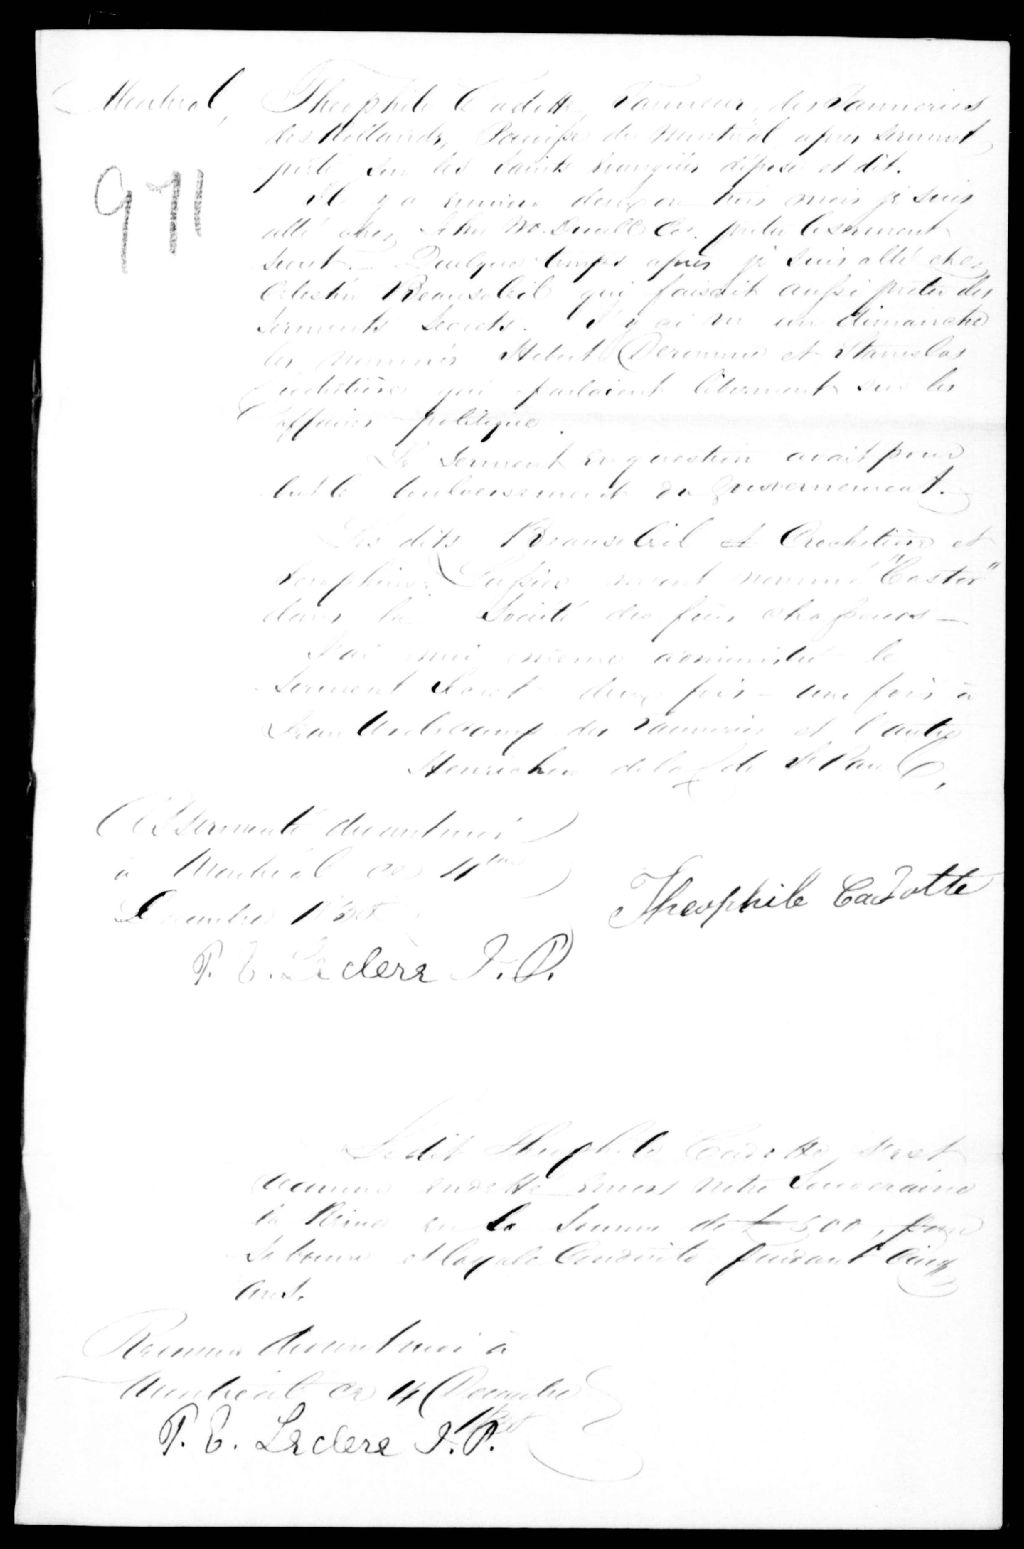 Montréal, Théophile Cadotte, Tanneur, des Tanneries
des Rollands, Paroisse de Montréal après serment
prêté sur les Saints Evangiles dépose et dit.
971
Il y a environ deux ou trois mois je suis
allé chez John McDonell Ecr. prêter le serment
secret — Quelque temps après je suis allé chez
Célestin Beausoleil qui faisait aussi prêter des
serments secrets. J'y ai vu un dimanche
les nommés et Stanislas
qui parlaient librement sur les
affaires politique.
Le serment en question avait pour
but le boulversement du gouvernement.
Les dits Beausoleil et Crochetière et
nommé "Castor"
dans la Société des frères chasseurs —
J'ai moi même administré le
serment secret deux fois — une fois à
Jean des Tanneries et l'autre
de St Paul,
Assermenté devant moi
à Montréal ce 4me
Décembre 1838
Théophile Cadotte
P. E. Leclere J. P.
Ledit Théophile Cadotte, s'est
reconnu endetté envers notre Souveraine
la Reine en la somme de £500, pour
sa bonne et loyale Conduite pendant Cinq
Ans.
Reconnu devant moi à
Montréal ce 4 Décembre
1838
P. E. Leclere J. P.